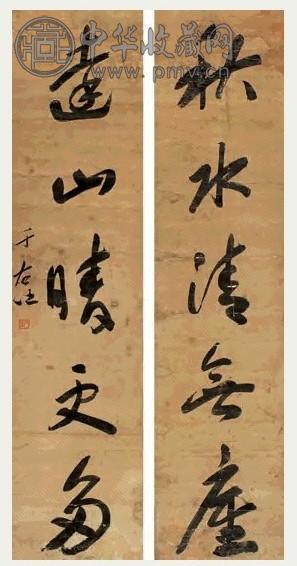 中华收藏网
www.pmv.cn
秋水清無塵
遠山晴更多
于右任